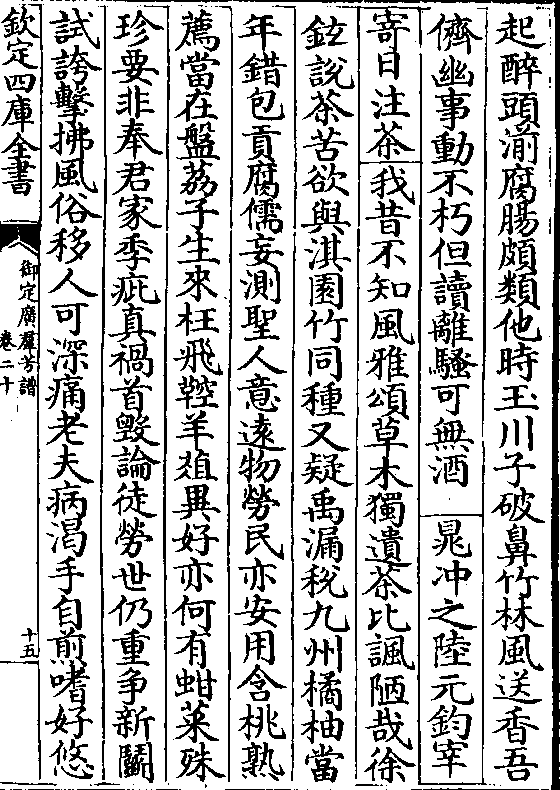 起醉頭湔腐腸頗類他時玉川子破鼻竹林風送香吾
儕幽事動不朽但讀離騷可無酒　晁冲之陸元鈞宰
寄日注茶　我昔不知風雅頌草木獨遺茶比諷陋哉徐
鉉說茶苦欲與淇園竹同種又疑禹漏稅九州橘柚當
年錯包貢腐儒妄測聖人意遠物勞民亦安用含桃熟
薦當在盤荔子生來枉飛鞚羊葅異好亦何有蚶菜殊
珍要非奉君家季疵真禍首毀論徒勞世仍重爭新鬬
試誇擊拂風俗移人可深痛老夫病渴手自煎嗜好悠
欽定四庫全書
御定廣羣芳譜
卷二十
十五